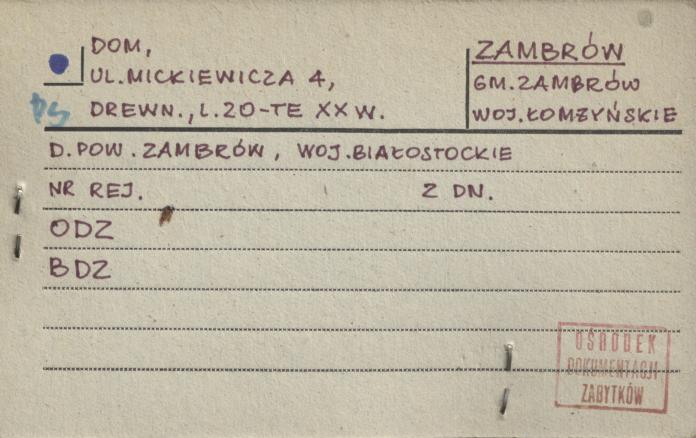 DOM,
UL. MICKIEWICZA 4,
DREWN., L. 20-TE XX W.
ZAMBRÓW
GM. ZAMBRÓW
WOJ. ŁOMŻYŃSKIE
PS
D. POW. ZAMBRÓW, WOJ. BIAŁOSTOCKIE
NR REJ. Z DN.
ODZ
BDZ
OŚRODEK
DOKUMENTACJI
ZABYTKÓW